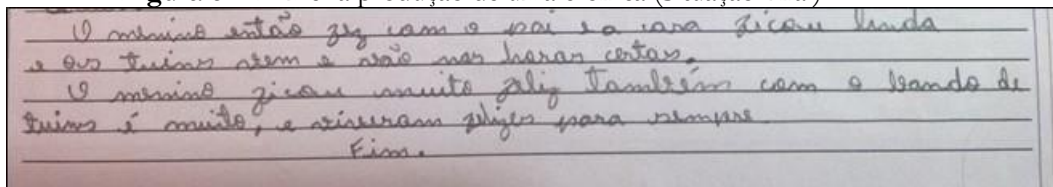 O menino então fez com o pai e a casa ficou linda
e os tuins vem e vão nas horas certas.
O menino ficou muito feliz também com o bando de
tuins é muito, e viveram felizes para sempre.
Fim.